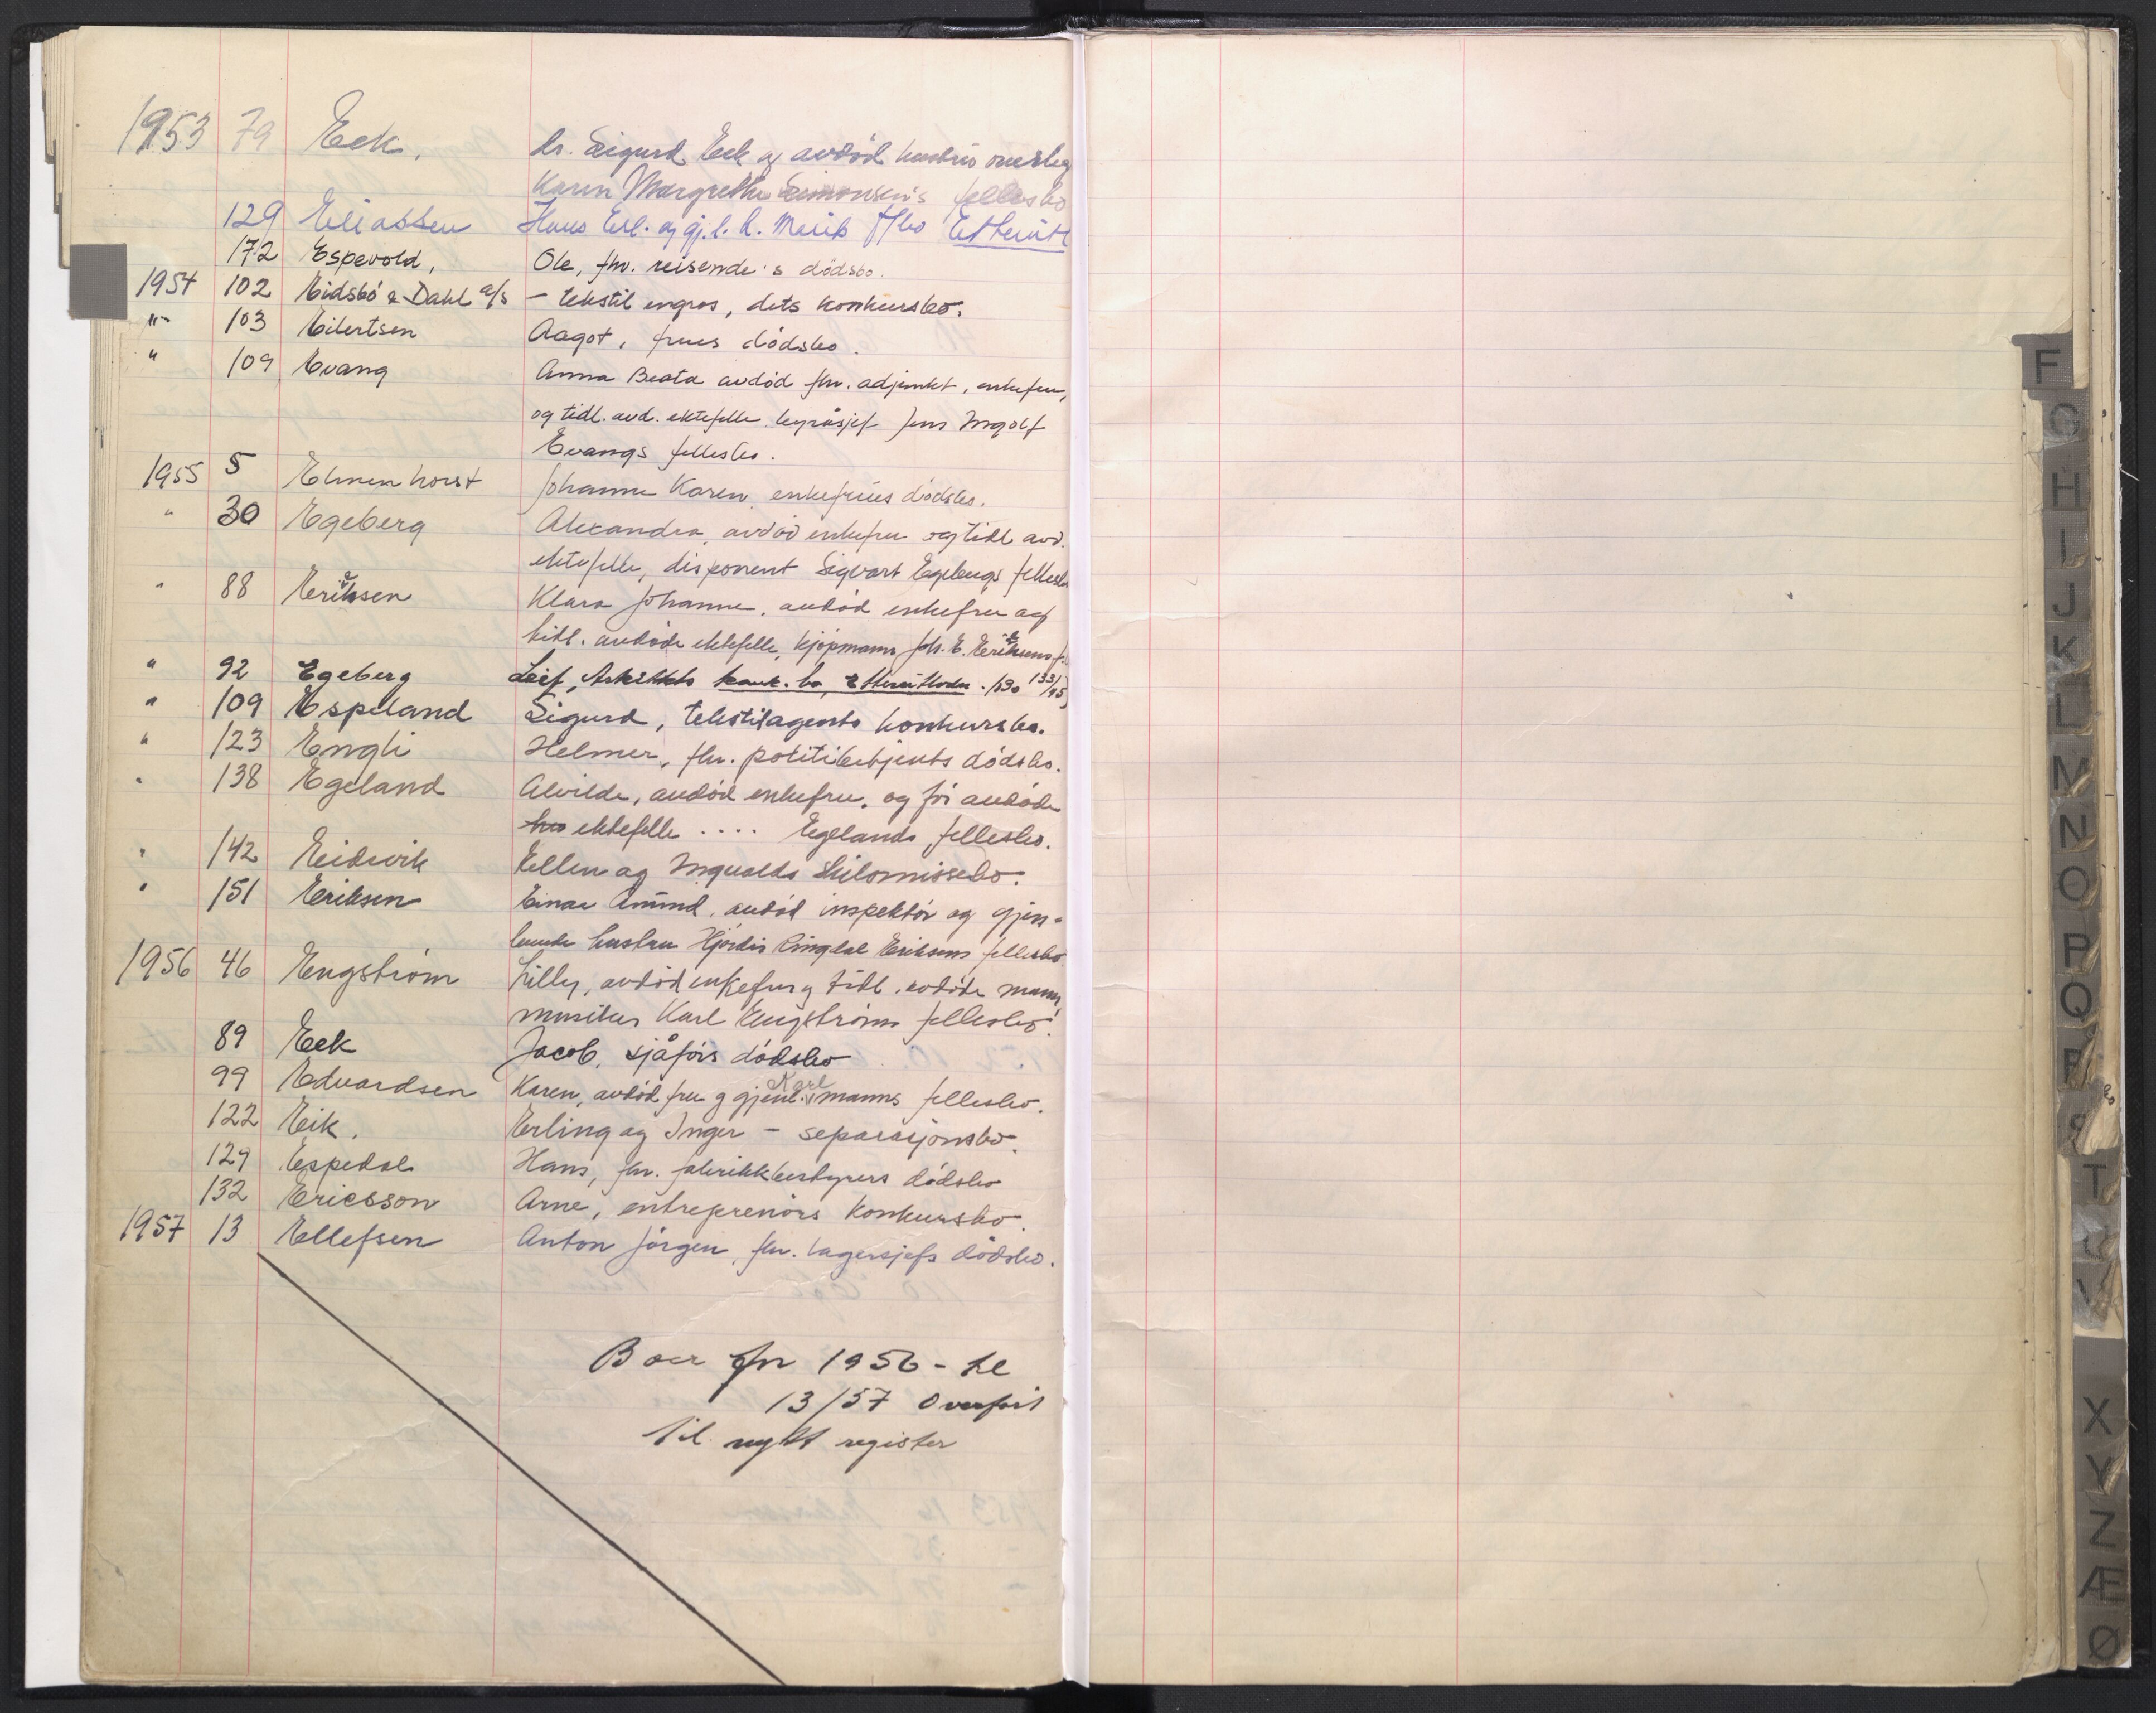 1953 79 Eek. dr. Sigurd Eek og avdød hustru
Karen Margrethe Simonsen's fellesbo
129 Eliassen Hans Erl. og gj.l. h. Marit
172 Espevold, Ole, fhv. reisende's dødsbo.
1954 102 Eidsbø & Dahl a/s - tekstil engros, dets konkursbo.
"- 103 Eilertsen Aagot, frues dødsbo.
" 109 Evang Anna Beata avdød fhv. adjunkt, enkefru,
og tidl. avd. ektefelle, byråsjef Jens Ingolf
Evangs fellesbo.
1955 5 Elmenhorst Johanne Karen, enkefrues dødsbo.
" 30 Egeberg Alexandra, avdød enkefru og tidl avd.
ektefelle, disponent Sigvart Egebergs fellesbo
" 88 Eriksen Klara Johanne, avdød enkefru og
tidl. avdøde ektefelle, kjøpmann Joh. E.
" 92 Egeberg Leif, Arkitekts konk. bo,
" 109 Espeland Sigurd, tekstilagents konkursbo.
" 123 Engli Helmer, fhv. politibetjents dødsbo.
" 138 Egeland Alvilde, avdød enkefru, og før avdøde
ektefelle .... Egelands fellesbo.
" 142 Eidsvik Ellen og Ingvalds skilsmissebo.
" 151 Eriksen Einar Amund, avdød inspektør og gjen-
levende hustru Hjørdis Ringdal Eriksens fellesbo
1956 46 Engstrøm Lilly, avdød enkefru og tidl. avdøde mann,
musiker Karl Engstrøms fellesbo.
89 Eek Jacob, sjåførs dødsbo
99 Edvardsen Karen, avdød fru og gjenl. Karl manns fellesbo.
122 Eik. Erling og Inger - separasjonsbo.
129 Espedal Hans, fhv. fabrikkbestyrers dødsbo
132 Ericsson Arne, entreprenørs konkursbo.
1957 13 Ellefsen Anton Jørgen, fhv. lagersjefs dødsbo.
Boer for 1956 - til
13/57 overført
til nytt register
F
G
H
I
J
K
L
M
N
O
P
Q
R
S
T
U
V
X
Y
Z
Æ
Ø